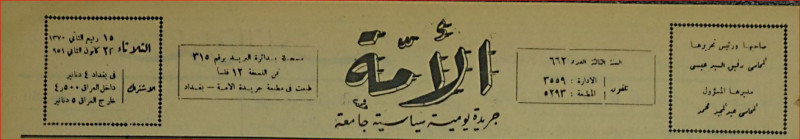 صاحبها ورئيس تحريرها
المحامي رفيق السيد عيسى
مديرها المسؤول
المحامي عبد المجيد محمد
السنة الثالثة العدد ٦٦٢
تلفون
الادارة : ٣٥٥٩
المطبعة : ٥٢٩٣
الأمة
جريدة يومية سياسية جامعة
مسجلة بدائرة البريد برقم ٣١٥
ثمن النسخة ١٢ فلسا
طبعت في مطبعة جريدة الامة - بغداد
الثلاثاء
١٥ ربيع الثاني ١٣٧٠
٢٣ كانون الثاني ٩٥١
الاشتراك
في بغداد ٤ دنانير
داخل العراق ٤,٥٠٠
خارج العراق ٥ دنانير